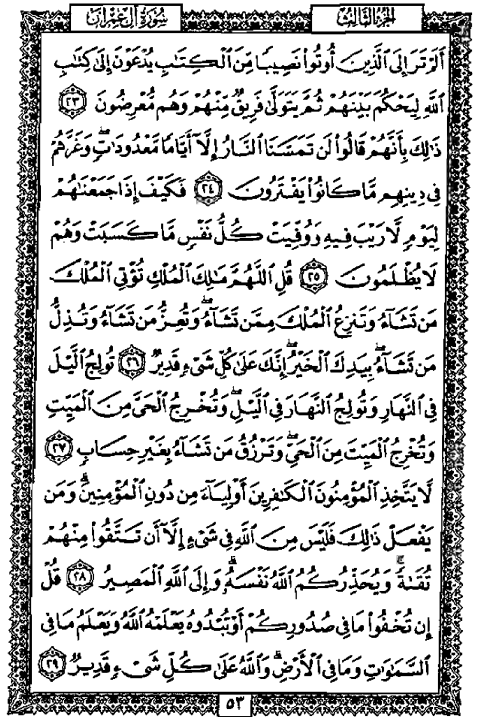 الجزء الثالث
سورة آل عمران
أَلَمْ تَرَ إِلَى الَّذِينَ أُوتُوا نَصِيبًا مِّنَ الْكِتَٰبِ يُدْعَوْنَ إِلَىٰ كِتَٰبِ
اللَّهِ لِيَحْكُمَ بَيْنَهُمْ ثُمَّ يَتَوَلَّىٰ فَرِيقٌ مِّنْهُمْ وَهُم مُّعْرِضُونَ ٢٣
ذَٰلِكَ بِأَنَّهُمْ قَالُوا لَن تَمَسَّنَا النَّارُ إِلَّا أَيَّامًا مَّعْدُودَٰتٍ ۖ وَغَرَّهُمْ
فِي دِينِهِم مَّا كَانُوا يَفْتَرُونَ ٢٤ فَكَيْفَ إِذَا جَمَعْنَٰهُمْ
لِيَوْمٍ لَّا رَيْبَ فِيهِ وَوُفِّيَتْ كُلُّ نَفْسٍ مَّا كَسَبَتْ وَهُمْ
لَا يُظْلَمُونَ ٢٥ قُلِ اللَّهُمَّ مَٰلِكَ الْمُلْكِ تُؤْتِي الْمُلْكَ
مَن تَشَاءُ وَتَنزِعُ الْمُلْكَ مِمَّن تَشَاءُ وَتُعِزُّ مَن تَشَاءُ وَتُذِلُّ
مَن تَشَاءُ ۖ بِيَدِكَ الْخَيْرُ ۖ إِنَّكَ عَلَىٰ كُلِّ شَيْءٍ قَدِيرٌ ٢٦ تُولِجُ الَّيْلَ
فِي النَّهَارِ وَتُولِجُ النَّهَارَ فِي الَّيْلِ ۖ وَتُخْرِجُ الْحَيَّ مِنَ الْمَيِّتِ
وَتُخْرِجُ الْمَيِّتَ مِنَ الْحَيِّ ۖ وَتَرْزُقُ مَن تَشَاءُ بِغَيْرِ حِسَابٍ ٢٧
لَّا يَتَّخِذِ الْمُؤْمِنُونَ الْكَٰفِرِينَ أَوْلِيَاءَ مِن دُونِ الْمُؤْمِنِينَ ۖ وَمَن
يَفْعَلْ ذَٰلِكَ فَلَيْسَ مِنَ اللَّهِ فِي شَيْءٍ إِلَّا أَن تَتَّقُوا مِنْهُمْ
تُقَىٰةً ۗ وَيُحَذِّرُكُمُ اللَّهُ نَفْسَهُ ۗ وَإِلَى اللَّهِ الْمَصِيرُ ٢٨ قُلْ
إِن تُخْفُوا مَا فِي صُدُورِكُمْ أَوْ تُبْدُوهُ يَعْلَمْهُ اللَّهُ ۗ وَيَعْلَمُ مَا فِي
السَّمَٰوَٰتِ وَمَا فِي الْأَرْضِ ۗ وَاللَّهُ عَلَىٰ كُلِّ شَيْءٍ قَدِيرٌ ٢٩
٥٣